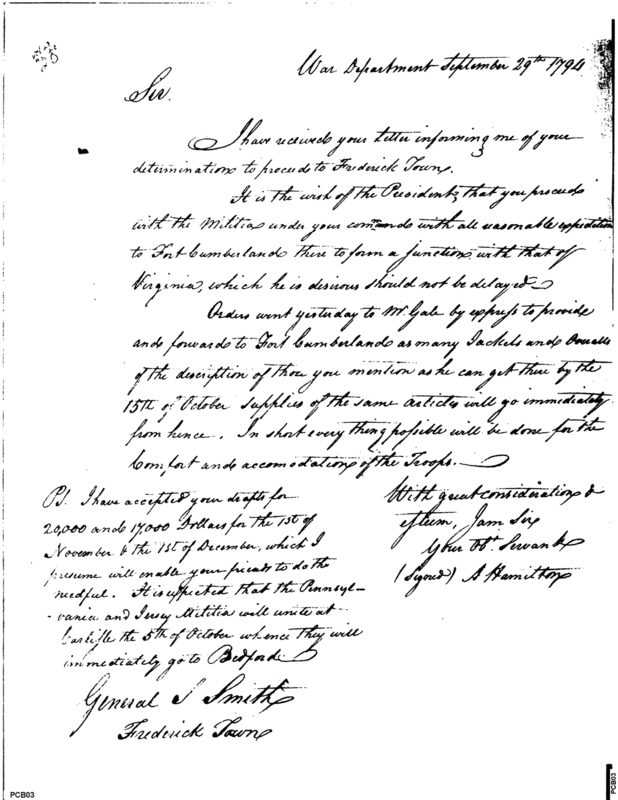 War Department September 29th 1794
Sir.
I have received your Letter informing me of your
determination to proceed to Frederick Town.
It is the wish of the President that you proceed
with the Militia under your command with all reasonable expedition
to Fort Cumberland there to form a junction with that of
Virginia, which he is desirous should not be delayed
Orders went yesterday to Mr Gale by express to provide
and forward to Fort Cumberland as many Jackets and Overalls
of the description of those you mention as he can get there by the
15th of October supplies of the same articles will go immediately
from hence. In short every thing possible will be done for the
Comfort and accomodation of the Troops.
With great consideration &
esteem, I am Sir
Your Obt Servant
(Signed) A Hamilton
PS. I have accepted your drafts for
20,000 and 17,000 Dollars for the 1st of
November & the 1st of December, which I
presume will enable your friends to do the
needful. It is expected that the Pennsyl-
-vania and Jersey Militia will unite at
Carlisle the 5th of October whence they will
immediately go to Bedford
General S Smith
Frederick Town
PCB03
PCB03